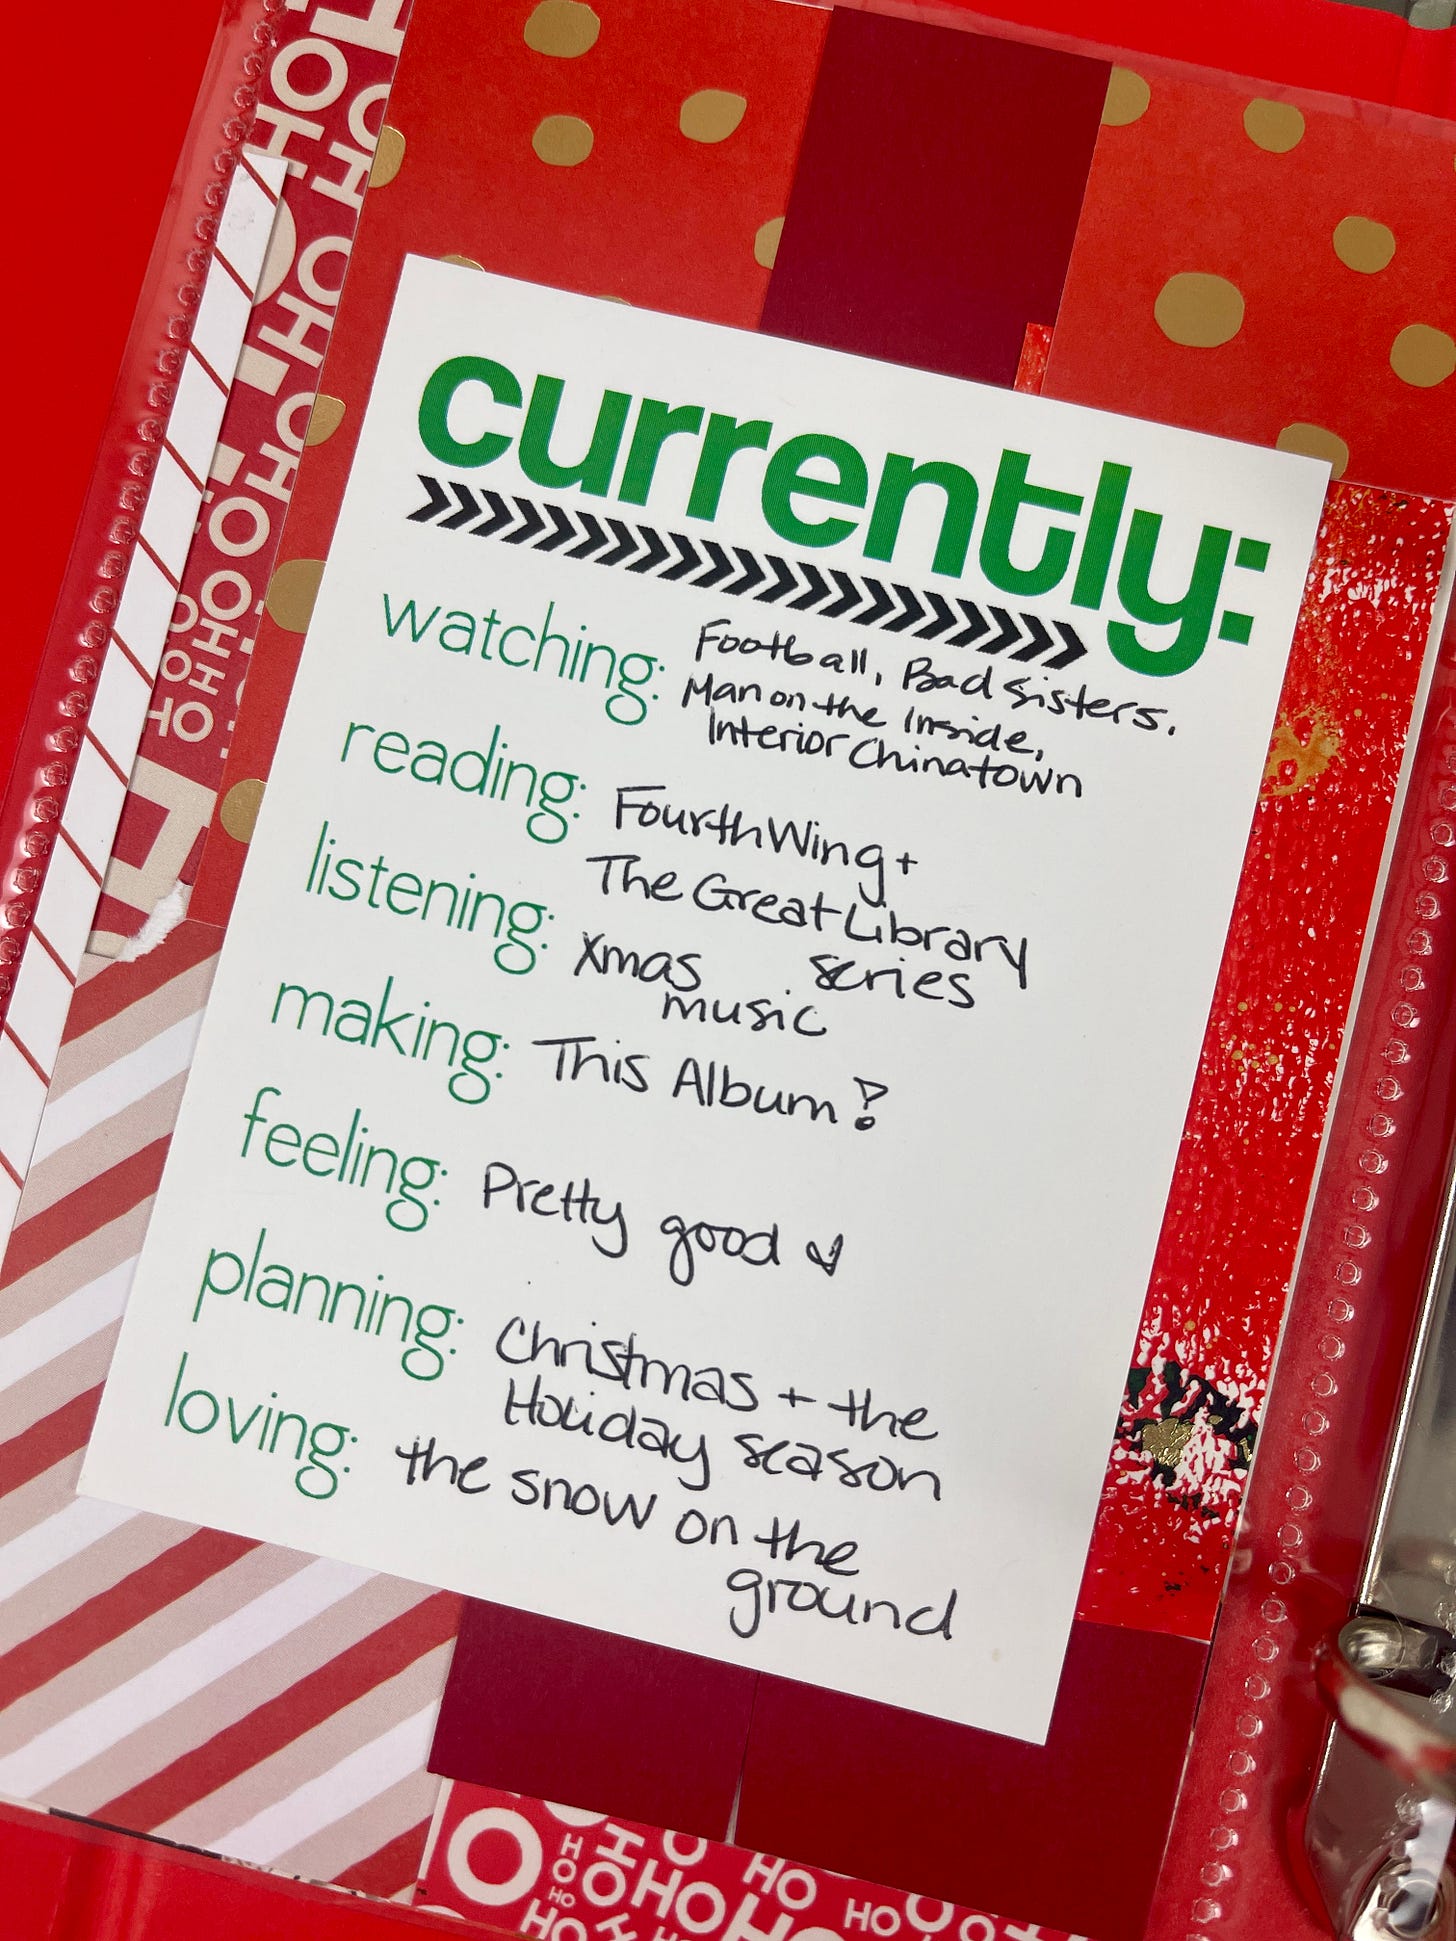 currently:
watching: Football, Bad Sisters,
Man on the Inside,
Interior Chinatown
reading: Fourth Wing +
The Great Library
series
listening: Xmas
music
making: This Album!
feeling: Pretty good
planning: Christmas + the
Holiday season
loving: the snow on the
ground
HO HO HO
HO
HO
HO
HO
HO
HO
HO
HO
HO
HO
HO